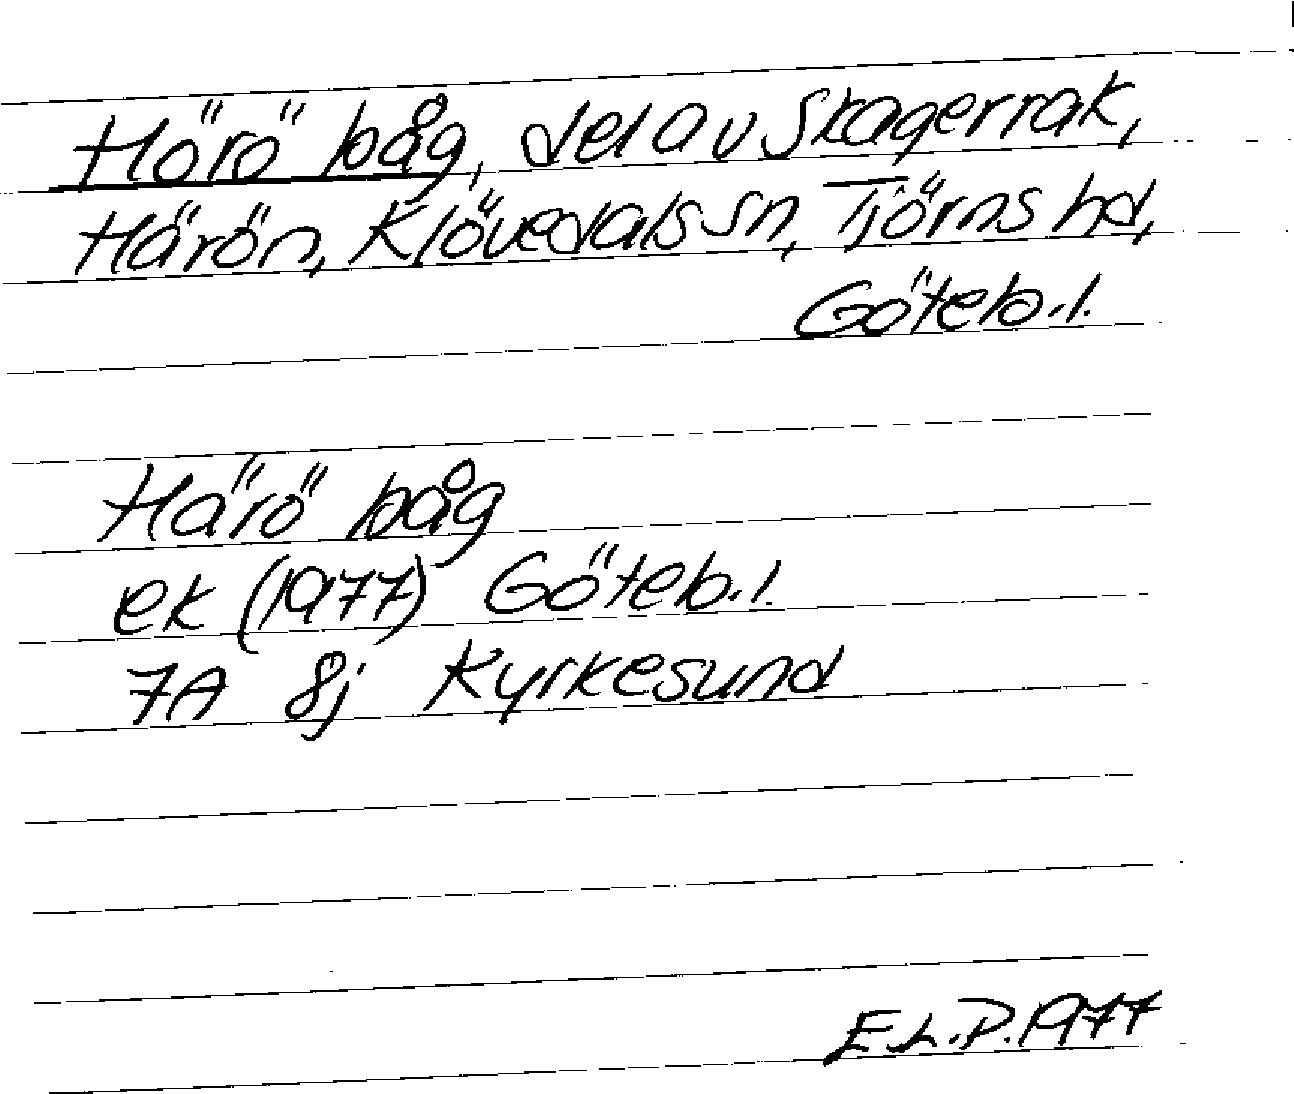 Härö båg, del av Skagerrak,
Härön, Klövedals sn, Tjörns hd,
Göteb. l.
Härö båg
ek (1977) Göteb. l.
7A 8j Kyrkesund
E.L.P. 1977